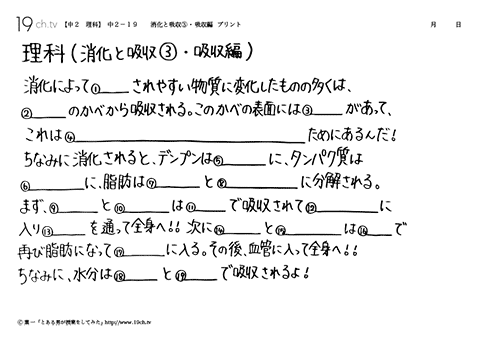 19ch.tv 【中2 理科】 中2-19 消化と吸収③・吸収編 プリント 月 日
理科(消化と吸収③・吸収編)
消化によって①____されやすい物質に変化したものの多くは、
②____のかべから吸収される。このかべの表面には③____があって、
これは④____ためにあるんだ!
ちなみに消化されると、デンプンは⑤____に、タンパク質は
⑥____に、脂肪は⑦____と⑧____に分解される。
まず、⑨____と⑩____は⑪____で吸収されて⑫____に
入り⑬____を通って全身へ!! 次に⑭____と⑮____は⑯____で
再び脂肪になって⑰____に入る。その後、血管に入って全身へ!!
ちなみに、水分は⑱____と⑲____で吸収されるよ!
Ⓒ 葉一「とある男が授業をしてみた」http://www.19ch.tv